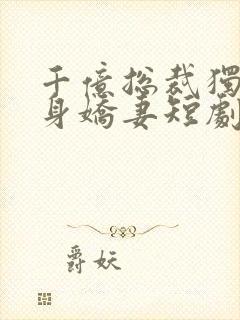 千億总裁獨
身嬌妻短劇
爵妖